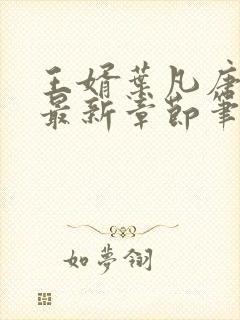 王婿葉凡唐
最新章節筆
如夢翎